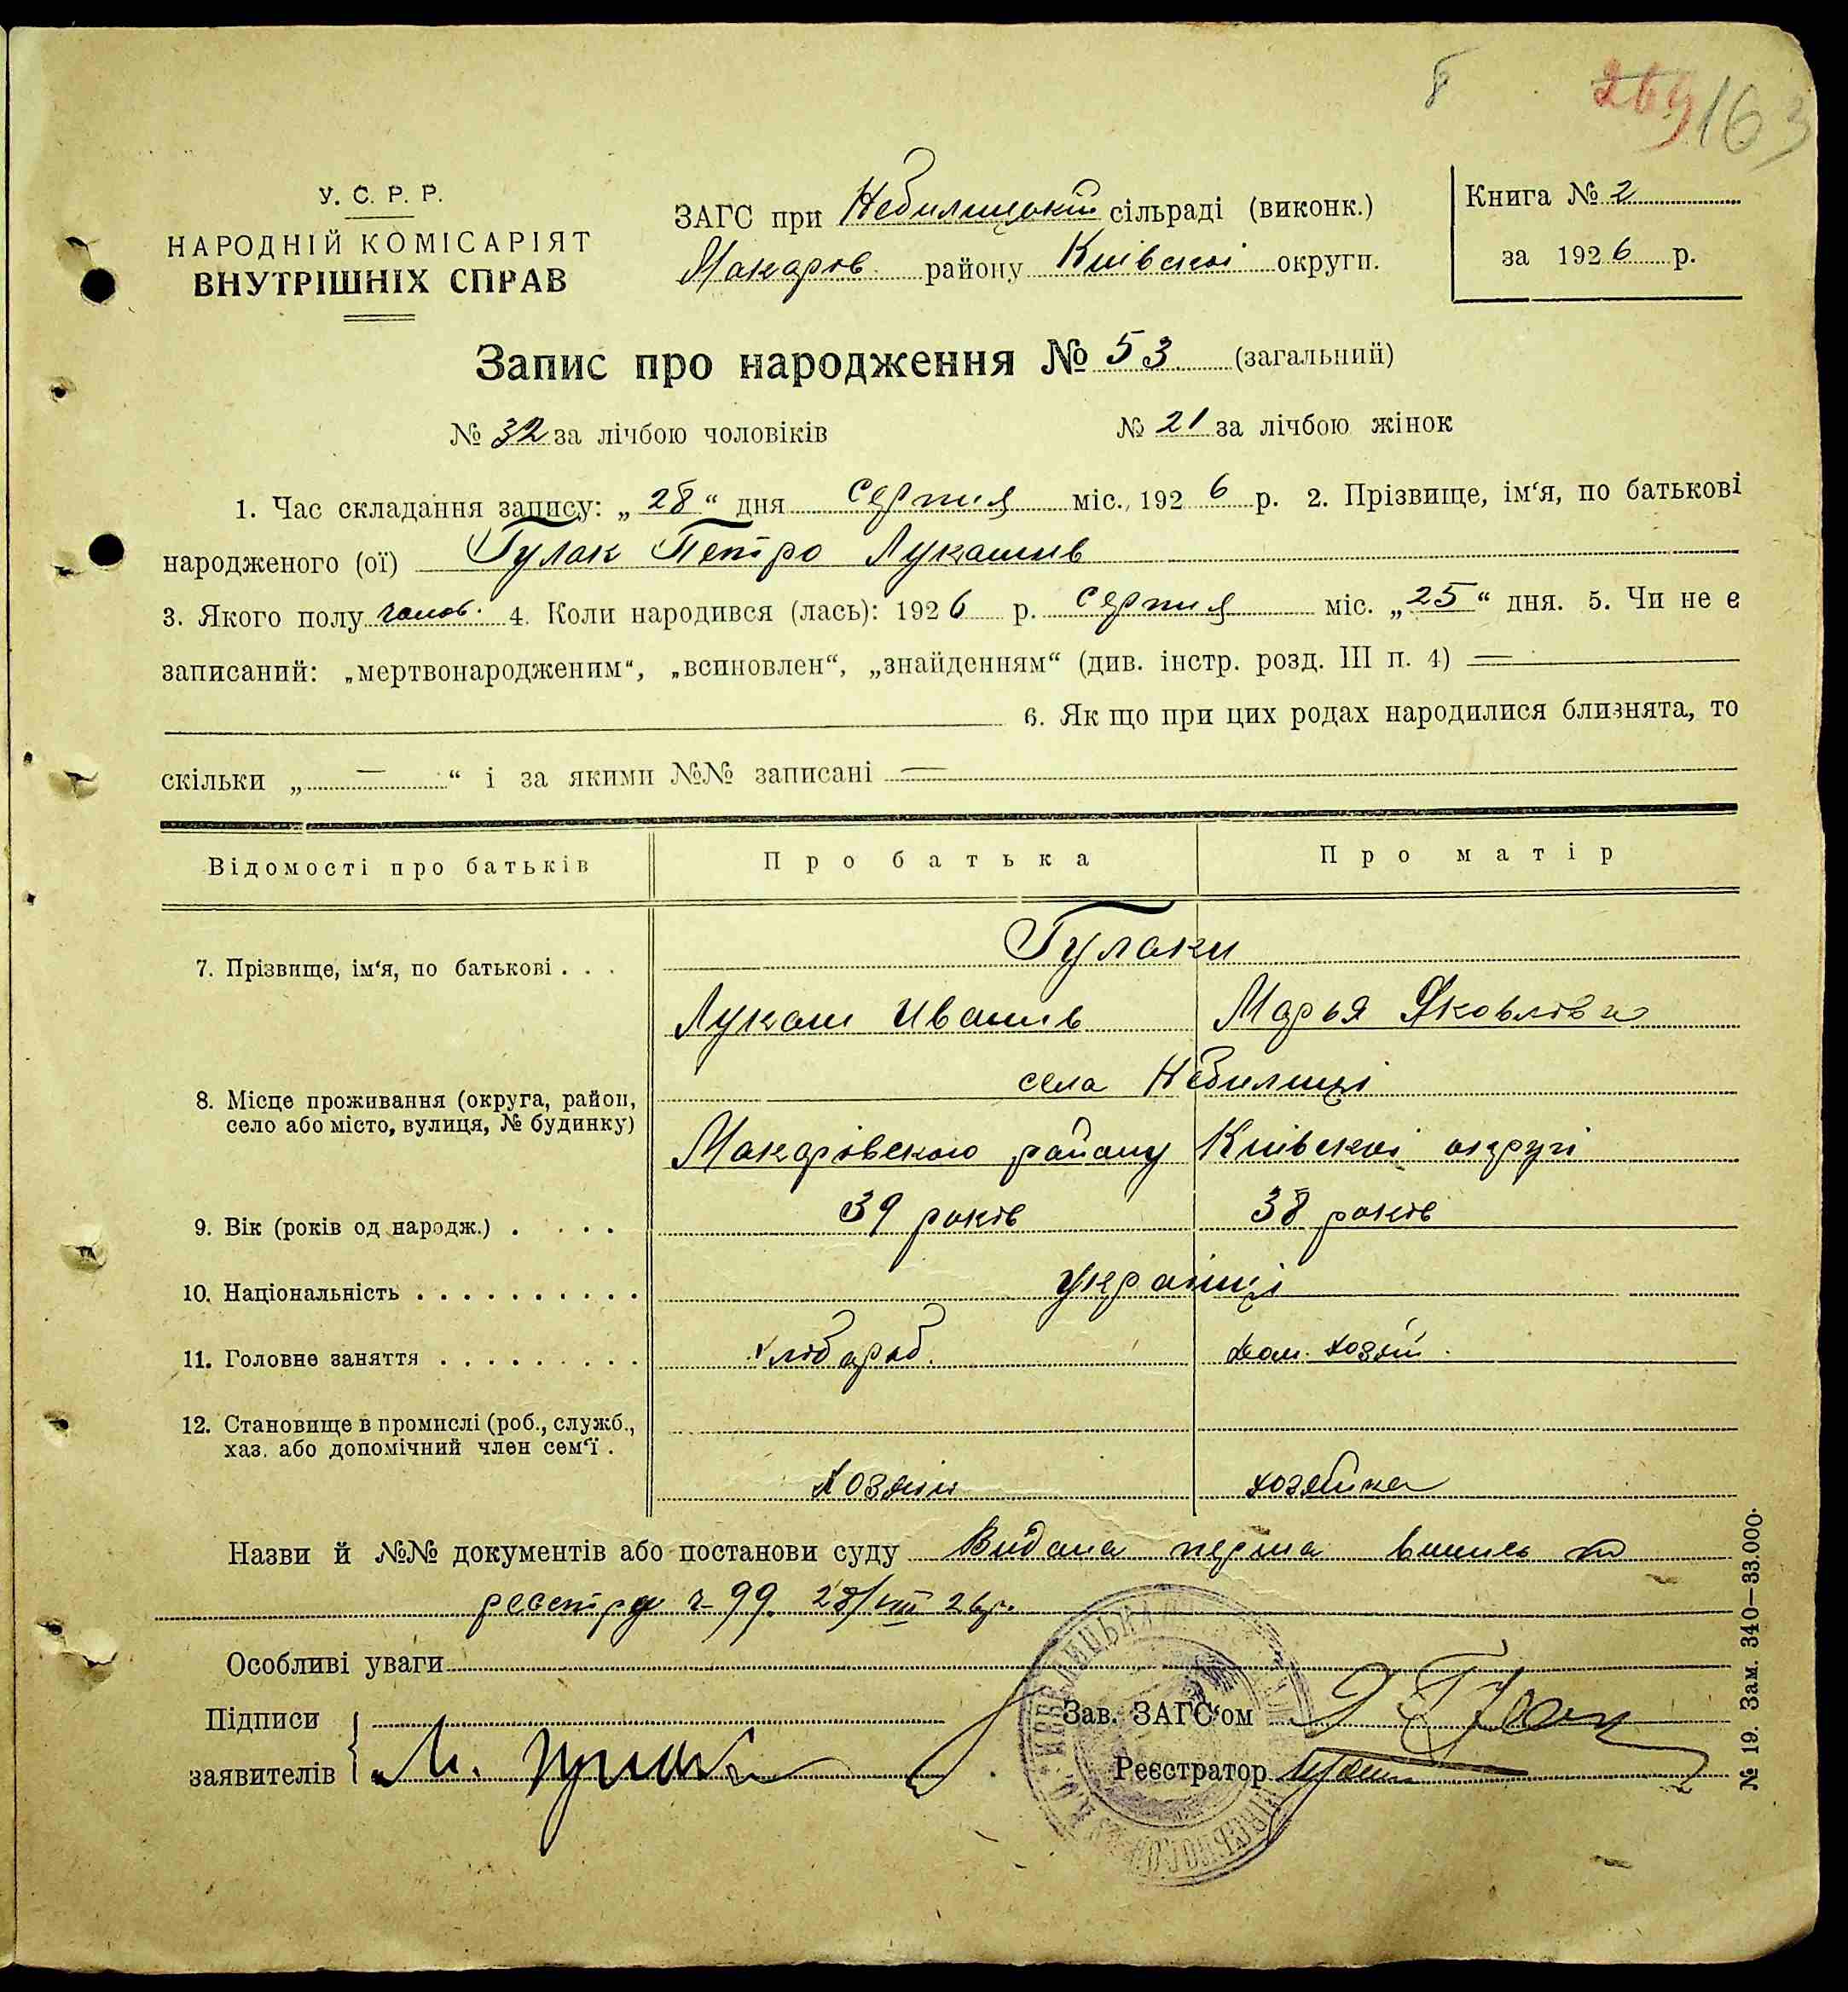 8 269 163
У. С. Р. Р.
НАРОДНІЙ КОМІСАРІЯТ
ВНУТРІШНІХ СПРАВ
ЗАГС при Небилицькій сільраді (виконк.)
Макарів району Київскоі округи.
Книга № 2
за 1926 р.
Запис про народження № 53 (загальний)
№ 32 за лічбою чоловіків № 21 за лічбою жінок
1. Час складання запису: „28“ дня серпня міс., 1926 р. 2. Прізвище, ім‘я, по батькові
народженого (ої) Гулак Петро Лукашив
3. Якого полу чолов. 4. Коли народився (лась): 1926 р. серпня міс. „25“ дня. 5. Чи не є
записаний: „мертвонародженим“, „всиновлен“, „знайденням“ (див. інстр. розд. III п. 4) —
6. Як що при цих родах народилися близнята, то
скільки „ — “ і за якими №№ записані —
Відомості про батьків Про батька Про матір
7. Прізвище, ім‘я, по батькові . . . Гулаки
Лукаш Иванив Марья Яковлівна
8. Місце проживання (округа, район, села Небилиці
село або місто, вулиця, № будинку)
Макарівского району Київскоі округі
9. Вік (років од народж.) . . . . . 39 років 38 років
10. Національність . . . . . . . . . . українці
11. Головне заняття . . . . . . . . . хлібороб. дом. хозяй.
12. Становище в промислі (роб., служб.,
хаз. або допомічний член сем‘ї .
хозяин хозяйка
Назви й №№ документів або постанови суду Видана перша випись по
реєстру ч 99. 28/VIII 26 р.
Особливі уваги
Підписи Зав. ЗАГС‘ом
заявителів Л. Гулак Реєстратор
№ 19. Зам. 340—33.000.